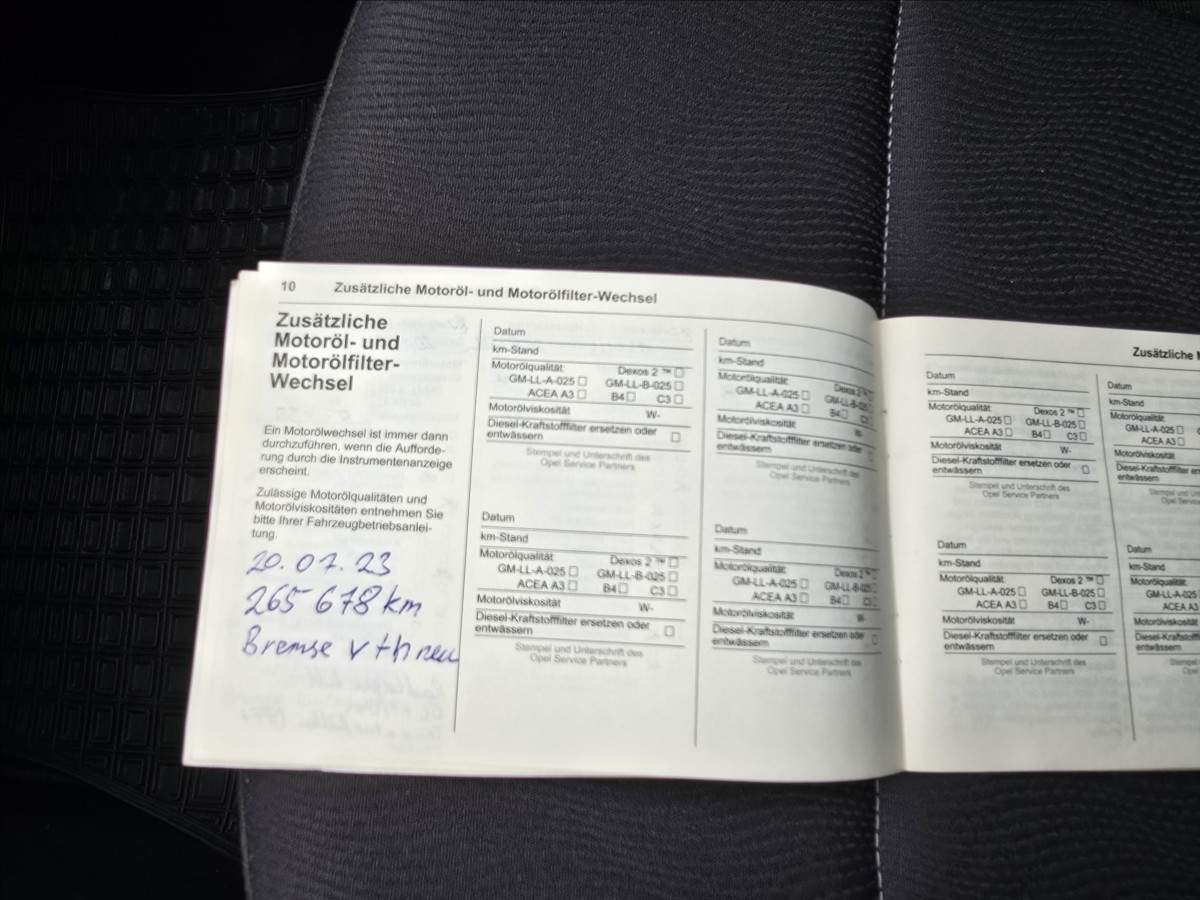 10 Zusätzliche Motoröl- und Motorölfilter-Wechsel
Zusätzliche
Motoröl- und
Motorölfilter-
Wechsel
Ein Motorölwechsel ist immer dann
durchzuführen, wenn die Aufforde-
rung durch die Instrumentenanzeige
erscheint.
Zulässige Motorölqualitäten und
Motorölviskositäten entnehmen Sie
bitte Ihrer Fahrzeugbetriebsanlei-
tung.
20.07.23
265 678 km
Bremse v+h neu
Datum
km-Stand
Motorölqualität: Dexos 2 ™ ☐
GM-LL-A-025 ☐ GM-LL-B-025 ☐
ACEA A3 ☐ B4 ☐ C3 ☐
Motorölviskosität W-
Diesel-Kraftstofffilter ersetzen oder
entwässern ☐
Stempel und Unterschrift des
Opel Service Partners
Datum
km-Stand
Motorölqualität: Dexos 2 ™ ☐
GM-LL-A-025 ☐ GM-LL-B-025 ☐
ACEA A3 ☐ B4 ☐ C3 ☐
Motorölviskosität W-
Diesel-Kraftstofffilter ersetzen oder
entwässern ☐
Stempel und Unterschrift des
Opel Service Partners
Datum
km-Stand
Motorölqualität: Dexos 2 ™ ☐
GM-LL-A-025 ☐ GM-LL-B-025 ☐
ACEA A3 ☐ B4 ☐ C3 ☐
Motorölviskosität W-
Diesel-Kraftstofffilter ersetzen oder
entwässern ☐
Stempel und Unterschrift des
Opel Service Partners
Datum
km-Stand
Motorölqualität: Dexos 2 ™ ☐
GM-LL-A-025 ☐ GM-LL-B-025 ☐
ACEA A3 ☐ B4 ☐ C3 ☐
Motorölviskosität W-
Diesel-Kraftstofffilter ersetzen oder
entwässern ☐
Stempel und Unterschrift des
Opel Service Partners
Zusätzliche
Datum
km-Stand
Motorölqualität: Dexos 2 ™ ☐
GM-LL-A-025 ☐ GM-LL-B-025 ☐
ACEA A3 ☐ B4 ☐ C3 ☐
Motorölviskosität W-
Diesel-Kraftstofffilter ersetzen oder
entwässern ☐
Stempel und Unterschrift des
Opel Service Partners
Datum
km-Stand
Motorölqualität: Dexos 2 ™ ☐
GM-LL-A-025 ☐ GM-LL-B-025 ☐
ACEA A3 ☐ B4 ☐ C3 ☐
Motorölviskosität W-
Diesel-Kraftstofffilter ersetzen oder
entwässern ☐
Stempel und Unterschrift des
Opel Service Partners
Datum
km-Stand
Motorölqualität:
GM-LL-A-025 ☐
ACEA A3 ☐
Motorölviskosität
Diesel-Kraftstofffilter
entwässern
Stempel und
Opel
Datum
km-Stand
Motorölqualität:
GM-LL-A-025
ACEA A3
Motorölviskosität
Diesel-Kraftstofffilter
entwässern
Stempel
Opel